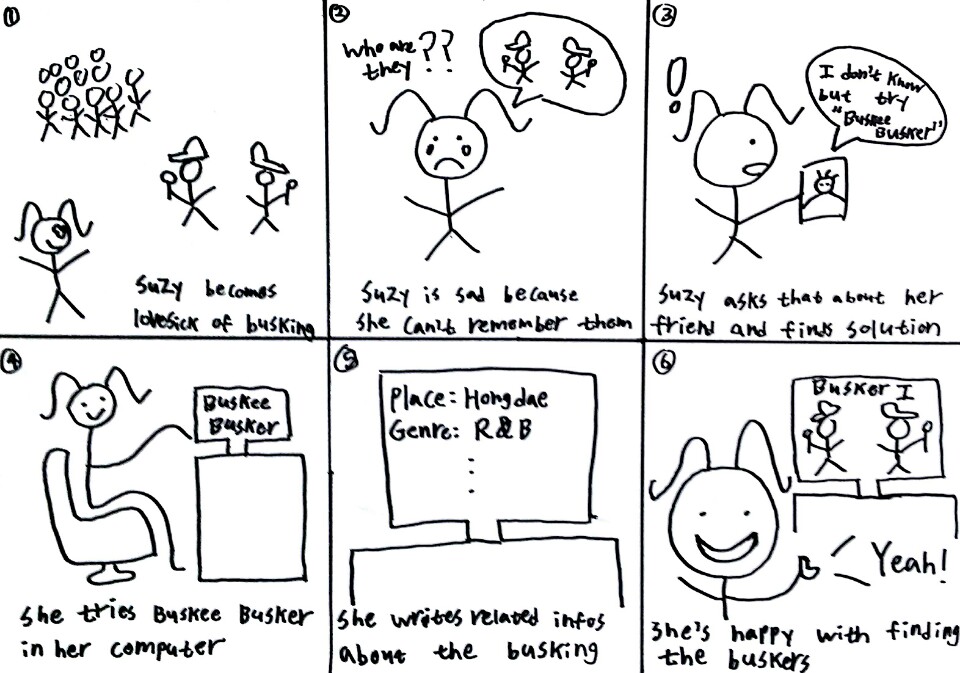 ①
Suzy becomes
lovesick of busking
②
who are
they??
Suzy is sad because
she can't remember them
③
!
I don't know
but try
"Buskee
Busker"
Suzy asks that about her
friend and finds solution
④
Buskee
Busker
She tries Buskee Busker
in her computer
⑤
Place: Hongdae
Genre: R&B
⋮
She writes related infos
about the busking
⑥
Busker I
Yeah!
She's happy with finding
the buskers